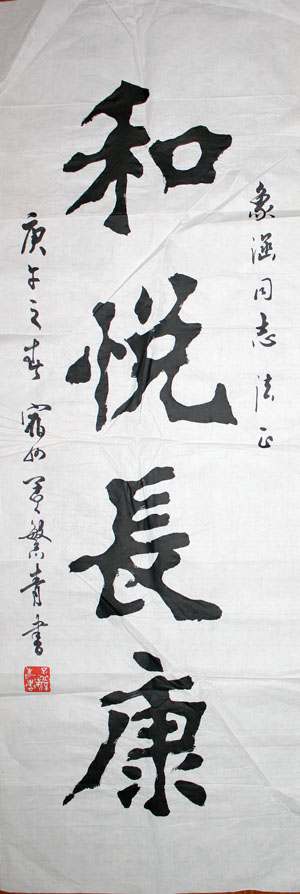 象涵同志 法正
和悦長康
庚午之春 書